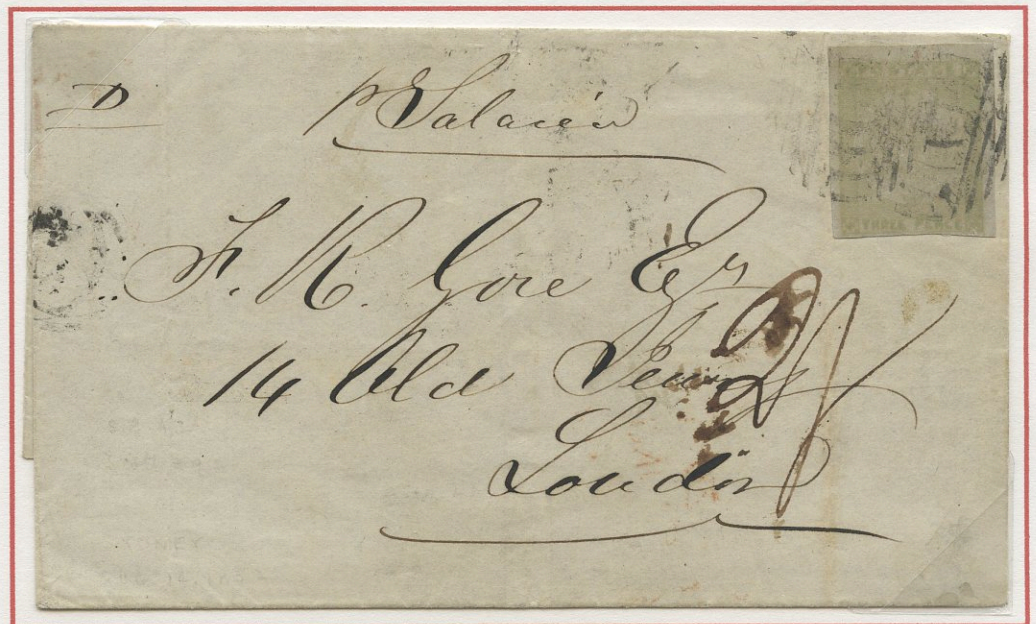 D
p Salacia
F. R. Gore Esqr
14 Old Jewry
London